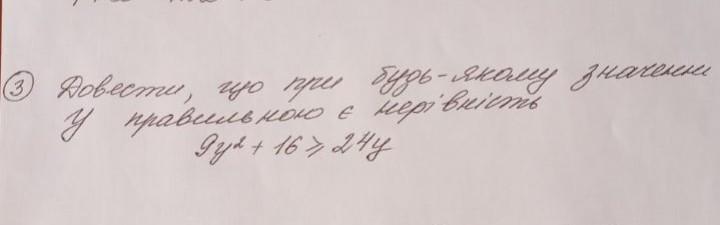 ③ Довести, що при будь-якому значенні
у правильною є нерівність
9y² + 16 ≥ 24y